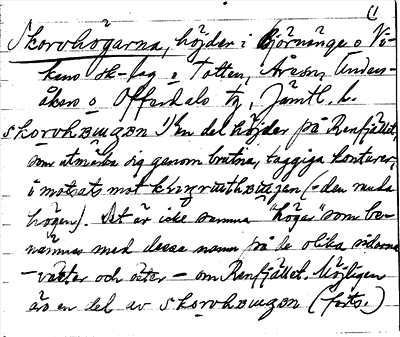 (1
Skorvhögarna, höjder i Björnänge o Vi-
kens sk-lag o Totten, Åresn, Under-
åkers o Offerdals tg, Jämtl. l.
skorvhʙɯgʙn l) en del höjder på Renfjället,
som utmärka sig genom brutna, taggiga konturer,
i motsats mot (= den runda
högen). Det är icke samma "högar" som be-
nämnes med dessa namn på de olika sidorna
– väster och öster – om Renfjället. Möjligen
äro en del av skorvhʙɯgʙn (forts.)